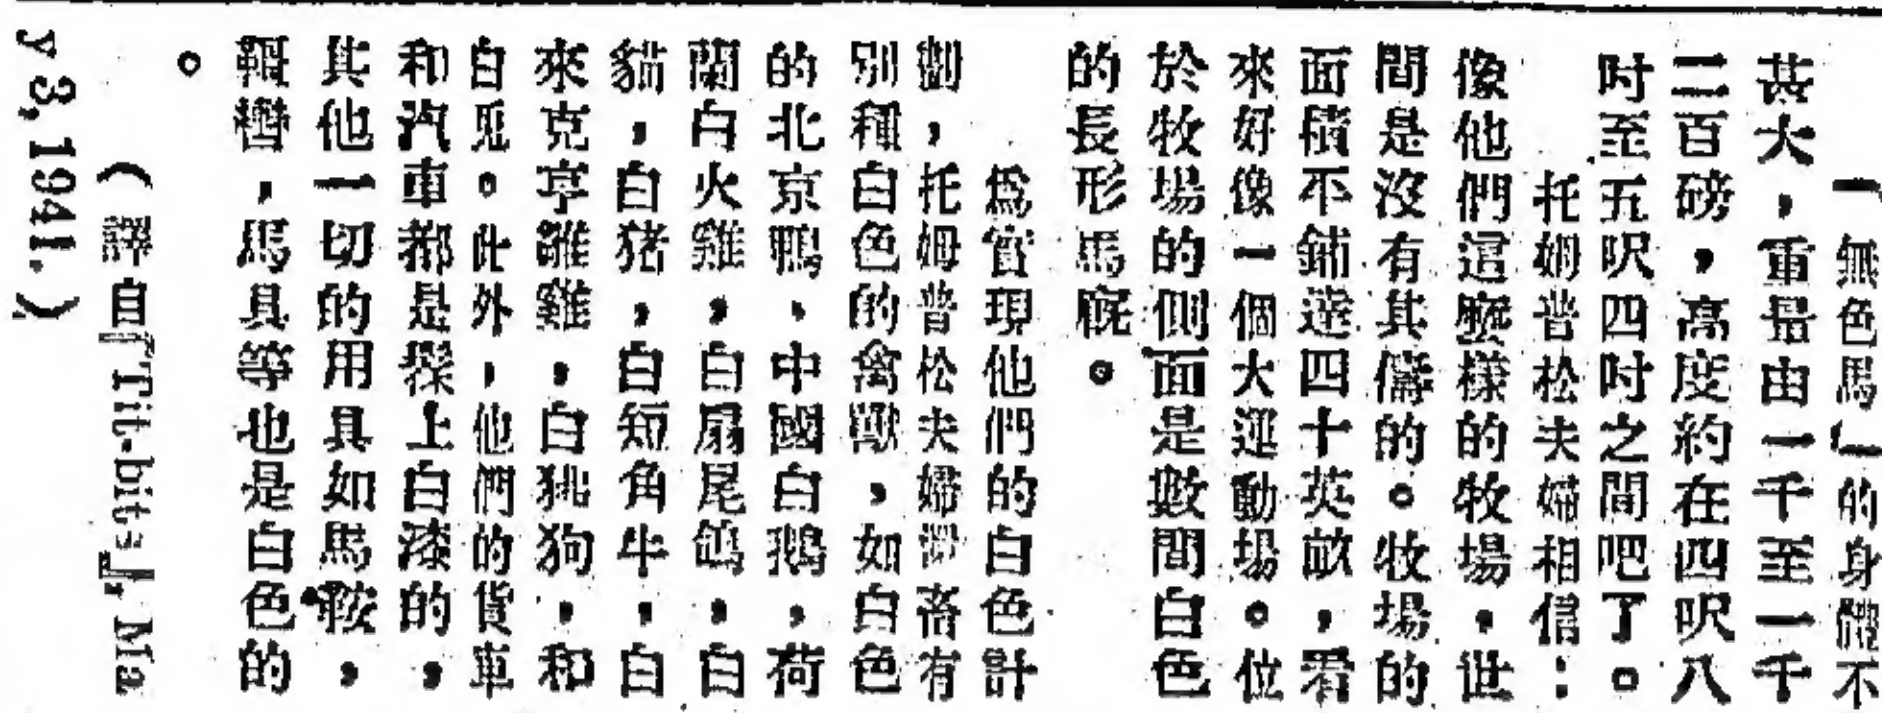 「無色馬」的身體不
甚大，重量由一千至一千
二百磅，高度約在四呎八
吋至五呎四吋之間吧了。
托姆普松夫婦相信：
像他們這麼樣的牧場，世
間是沒有其儔的。牧場的
面積不鋪達四十英畝，看
來好像一個大運動場。位
於牧場的側面是數間白色
的長形馬廐。
為實現他們的白色計
劃，托姆普松夫婦還畜有
別種白色的禽獸，如白色
的北京鴨，中國白鵝，荷
蘭白火雞，白扇尾鴿，白
貓，白猪，白短角牛，白
來克亨雛雞，白狐狗，和
白兎。此外，他們的貨車
和汽車都是髹上白漆的，
其他一切的用具如馬鞍，
韁轡，馬具等也是白色的
。
（譯自『Tit-bits』, Ma
y 3, 1941.）